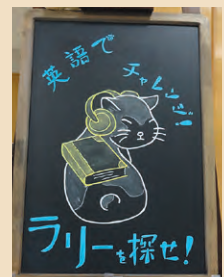 英語で
チャレンジ！
ラリーを探せ！